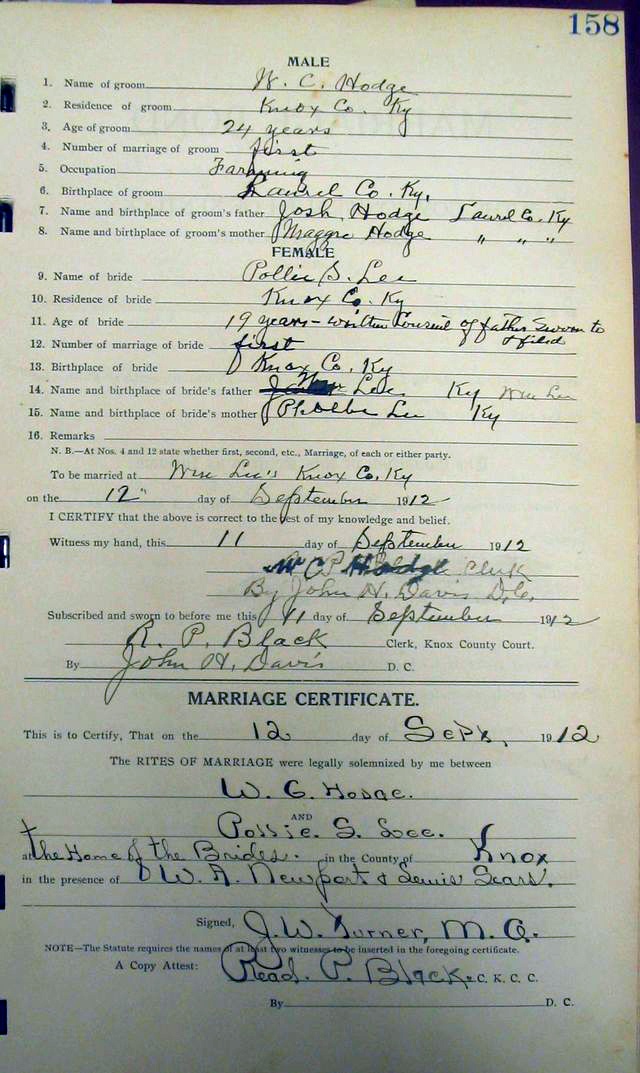 158
MALE
1. Name of groom W. C. Hodge
2. Residence of groom Knox Co. Ky
3. Age of groom 24 years
4. Number of marriage of groom first
5. Occupation Farming
6. Birthplace of groom Laurel Co. Ky.
7. Name and birthplace of groom's father Josh Hodge Laurel Co. Ky
8. Name and birthplace of groom's mother Maggie Hodge " " "
FEMALE
9. Name of bride Pollie S. Lee
10. Residence of bride Knox Co. Ky
11. Age of bride 19 years - written Consent of father Sworn to
& filed
12. Number of marriage of bride first
13. Birthplace of bride Knox Co. Ky
14. Name and birthplace of bride's father Wm Lee Ky Wm Lee
15. Name and birthplace of bride's mother Lee Ky
16. Remarks
N. B.—At Nos. 4 and 12 state whether first, second, etc., Marriage, of each or either party.
To be married at Wm Lee's Knox Co. Ky
on the 12" day of September 1912
I CERTIFY that the above is correct to the best of my knowledge and belief.
Witness my hand, this 11 day of September 1912
W C Hodge Clerk
By John H. Davis D.C.
Subscribed and sworn to before me this 11 day of September 1912
R. P. Black Clerk, Knox County Court.
By John H. Davis D. C.
MARRIAGE CERTIFICATE.
This is to Certify, That on the 12 day of Sept. 1912
The RITES OF MARRIAGE were legally solemnized by me between
W. C. Hodge.
AND
Pollie. S. Lee.
at the Home of the Brides. in the County of Knox
in the presence of W. A. Newport & Lewis Sears.
Signed, J. W. Turner, M. G.
NOTE—The Statute requires the names of at least two witnesses to be inserted in the foregoing certificate.
A Copy Attest: Read. P. Black. C. K. C. C.
By D. C.